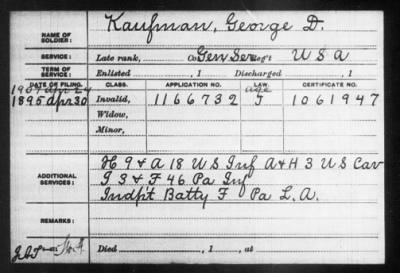 NAME OF SOLDIER: Kaufman, George D.
SERVICE: Late rank, Co. Gen Ser Reg't U S A
TERM OF SERVICE: Enlisted , 1 Discharged , 1
DATE OF FILING. CLASS. APPLICATION NO. LAW. CERTIFICATE NO.
Apr 24 Age
1895 Apr 30 Invalid, 1166732 J 1061947
Widow,
Minor,
ADDITIONAL SERVICES: H 9 & A 18 U S Inf A & H 3 U S Cav
I 3 & F 46 Pa Inf
Indp't Batty F Pa L. A.
REMARKS:
Died , 1 , at